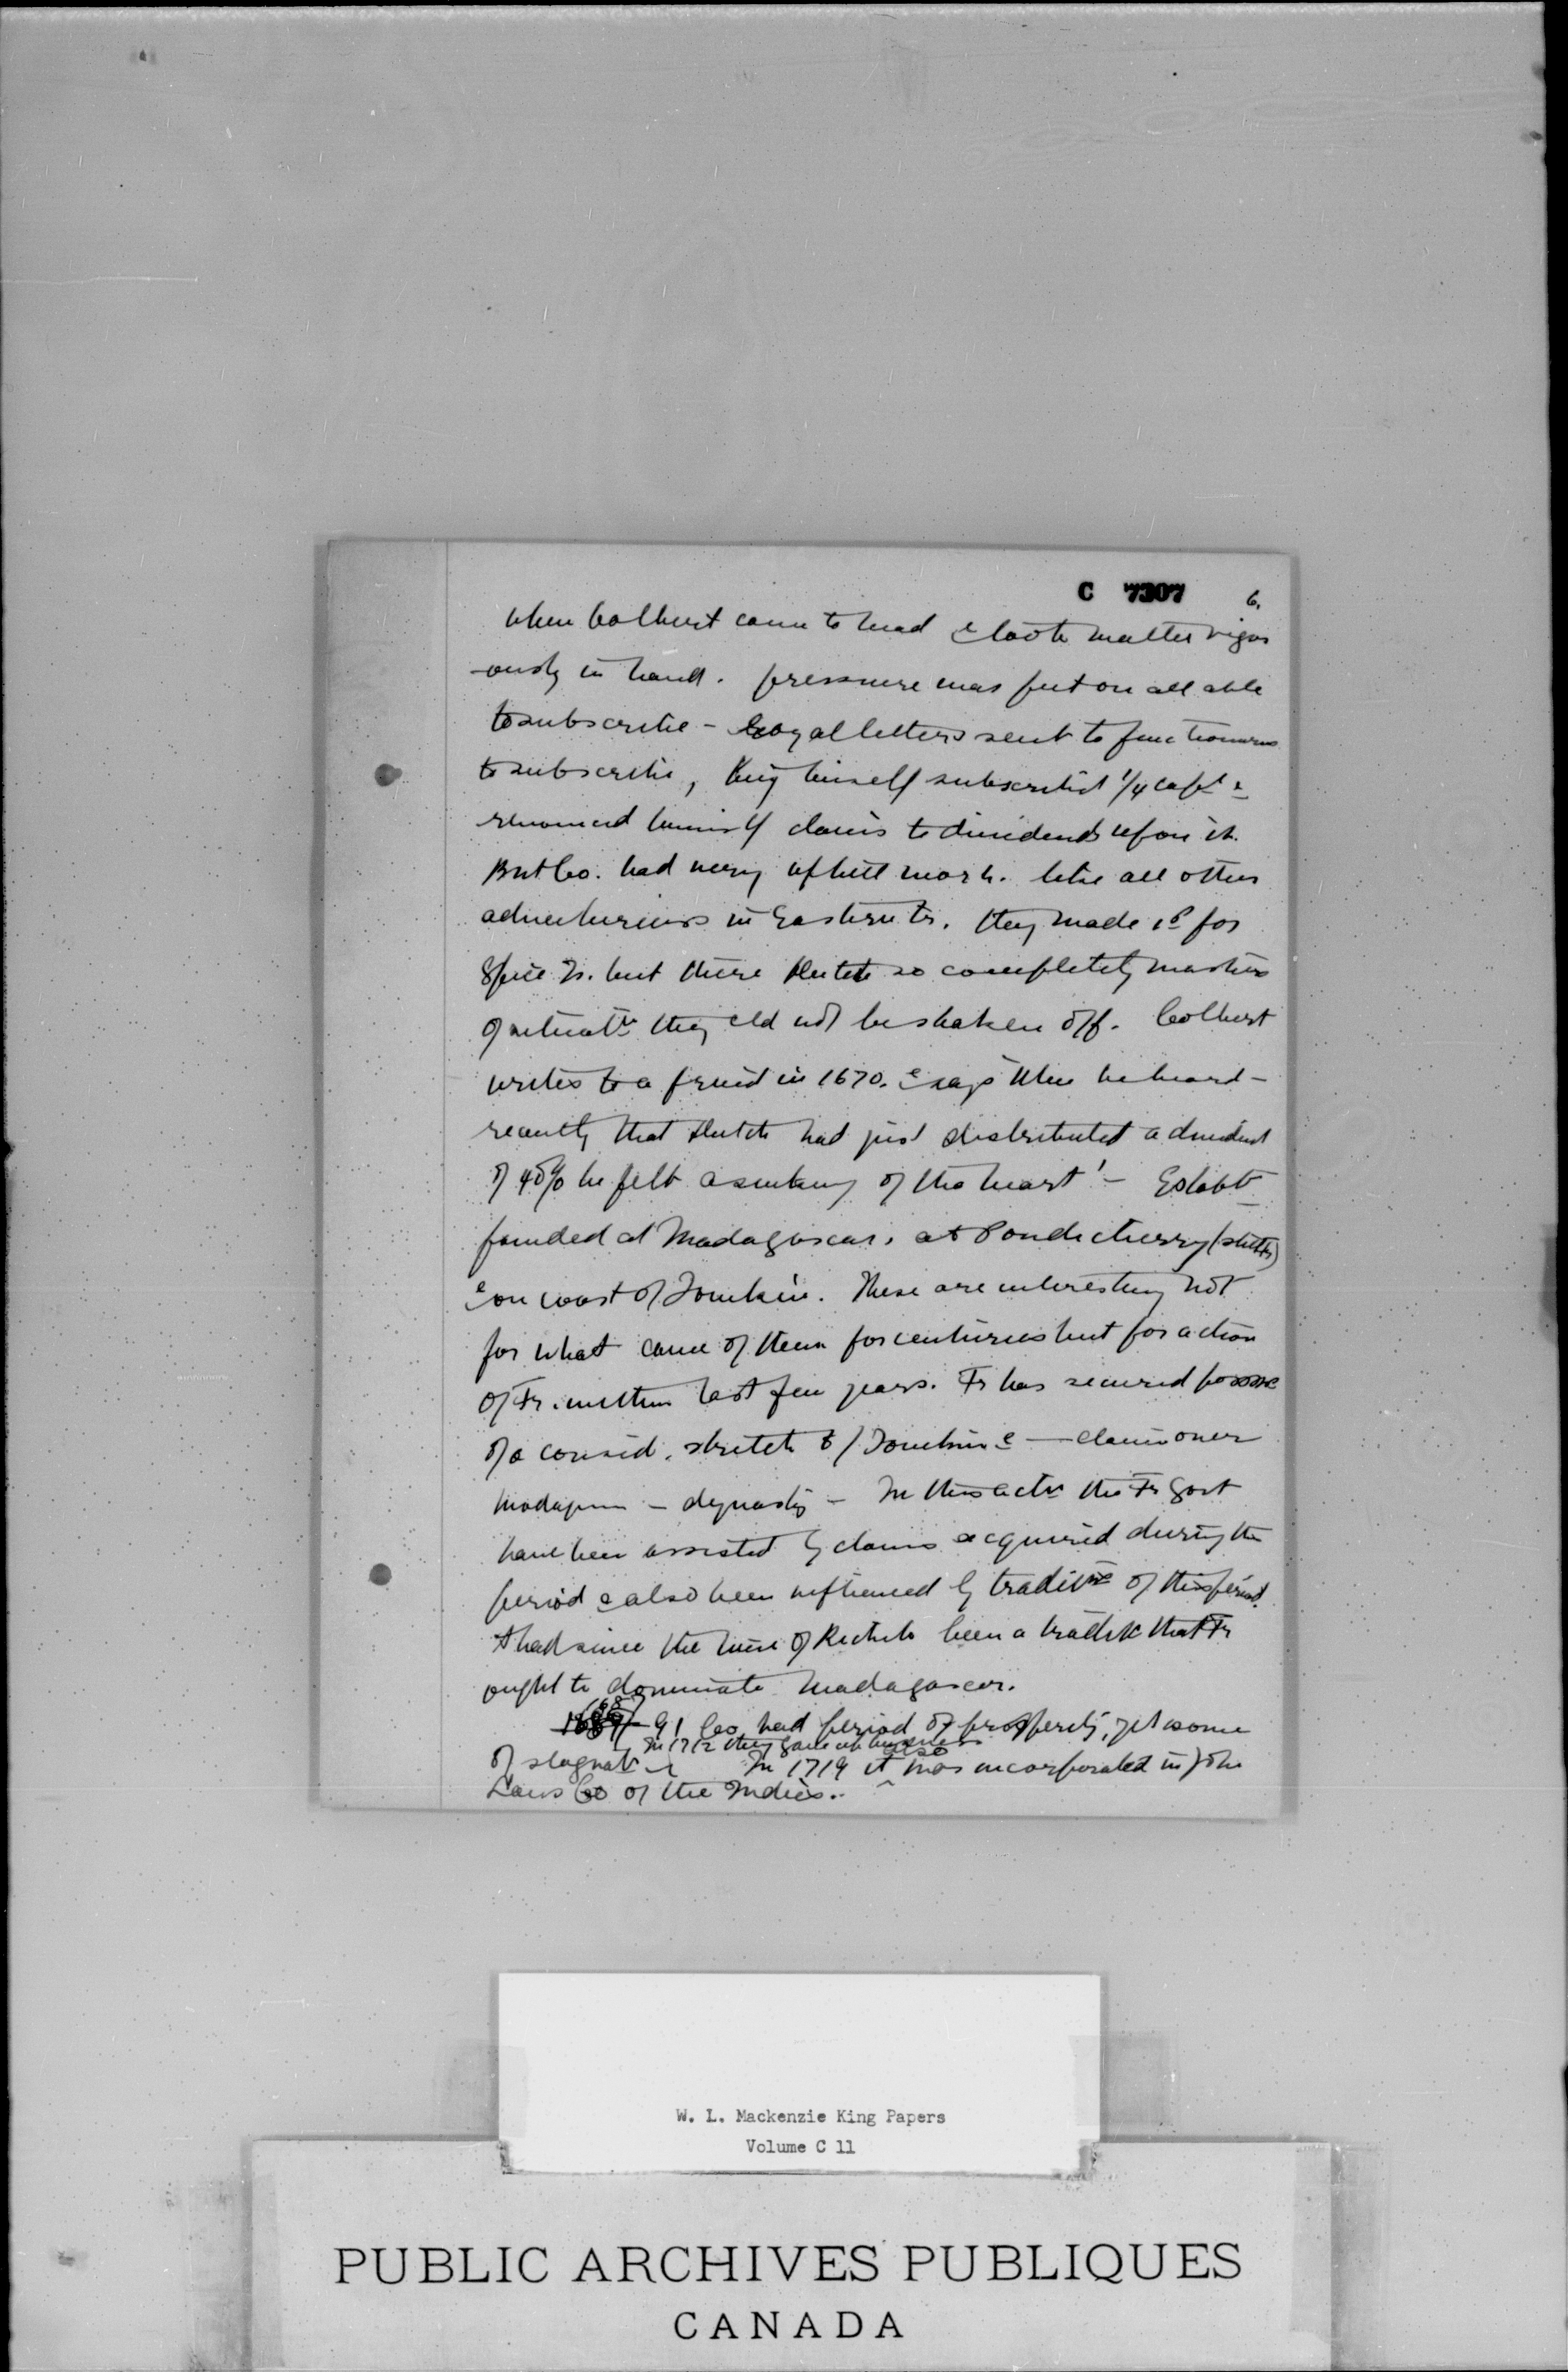 C 7307 6.
when Colbert came to head & took matter vigor
-ously in hand. pressure was put on all able
to subscribe - Royal letters sent to functionaries
to subscribe, King himself subscribed 1/4 capl &
renounced himself claims to dividends upon it.
But Co. had very uphill work. like all other
adventurers in Eastern tr. they made 1st for
Spice Is. but there Dutch so completely masters
of situatn they cld not be shaken off. Colbert
writes to a friend in 1670. & says when he heard -
recently that Dutch had just distributed a dividend
of 40% he felt a sinking of the heart' - Establt
founded at Madagascar, at Pondicherry
& on coast of Tonkin. These are interesting not
for what came of them for centuries but for action
of Fr. within last few years. Fr has secured possse
of a consid. stretch of Tonkin & - claim over
Madagasc - dynasty - In this actn the Fr Govt
have been assisted by claims acquired during the
period & also been influenced by traditns of this period.
It had since the time of Richelu been a traditn that Fr
ought to dominate Madagascar.
1687-91 Co had period of prosperity, yet some
In 1712 they gave up business
of stagnatn In 1719 it also was incorporated in John
Laws Co of the Indies.
W. L. Mackenzie King Papers
Volume C 11
PUBLIC ARCHIVES PUBLIQUES
CANADA